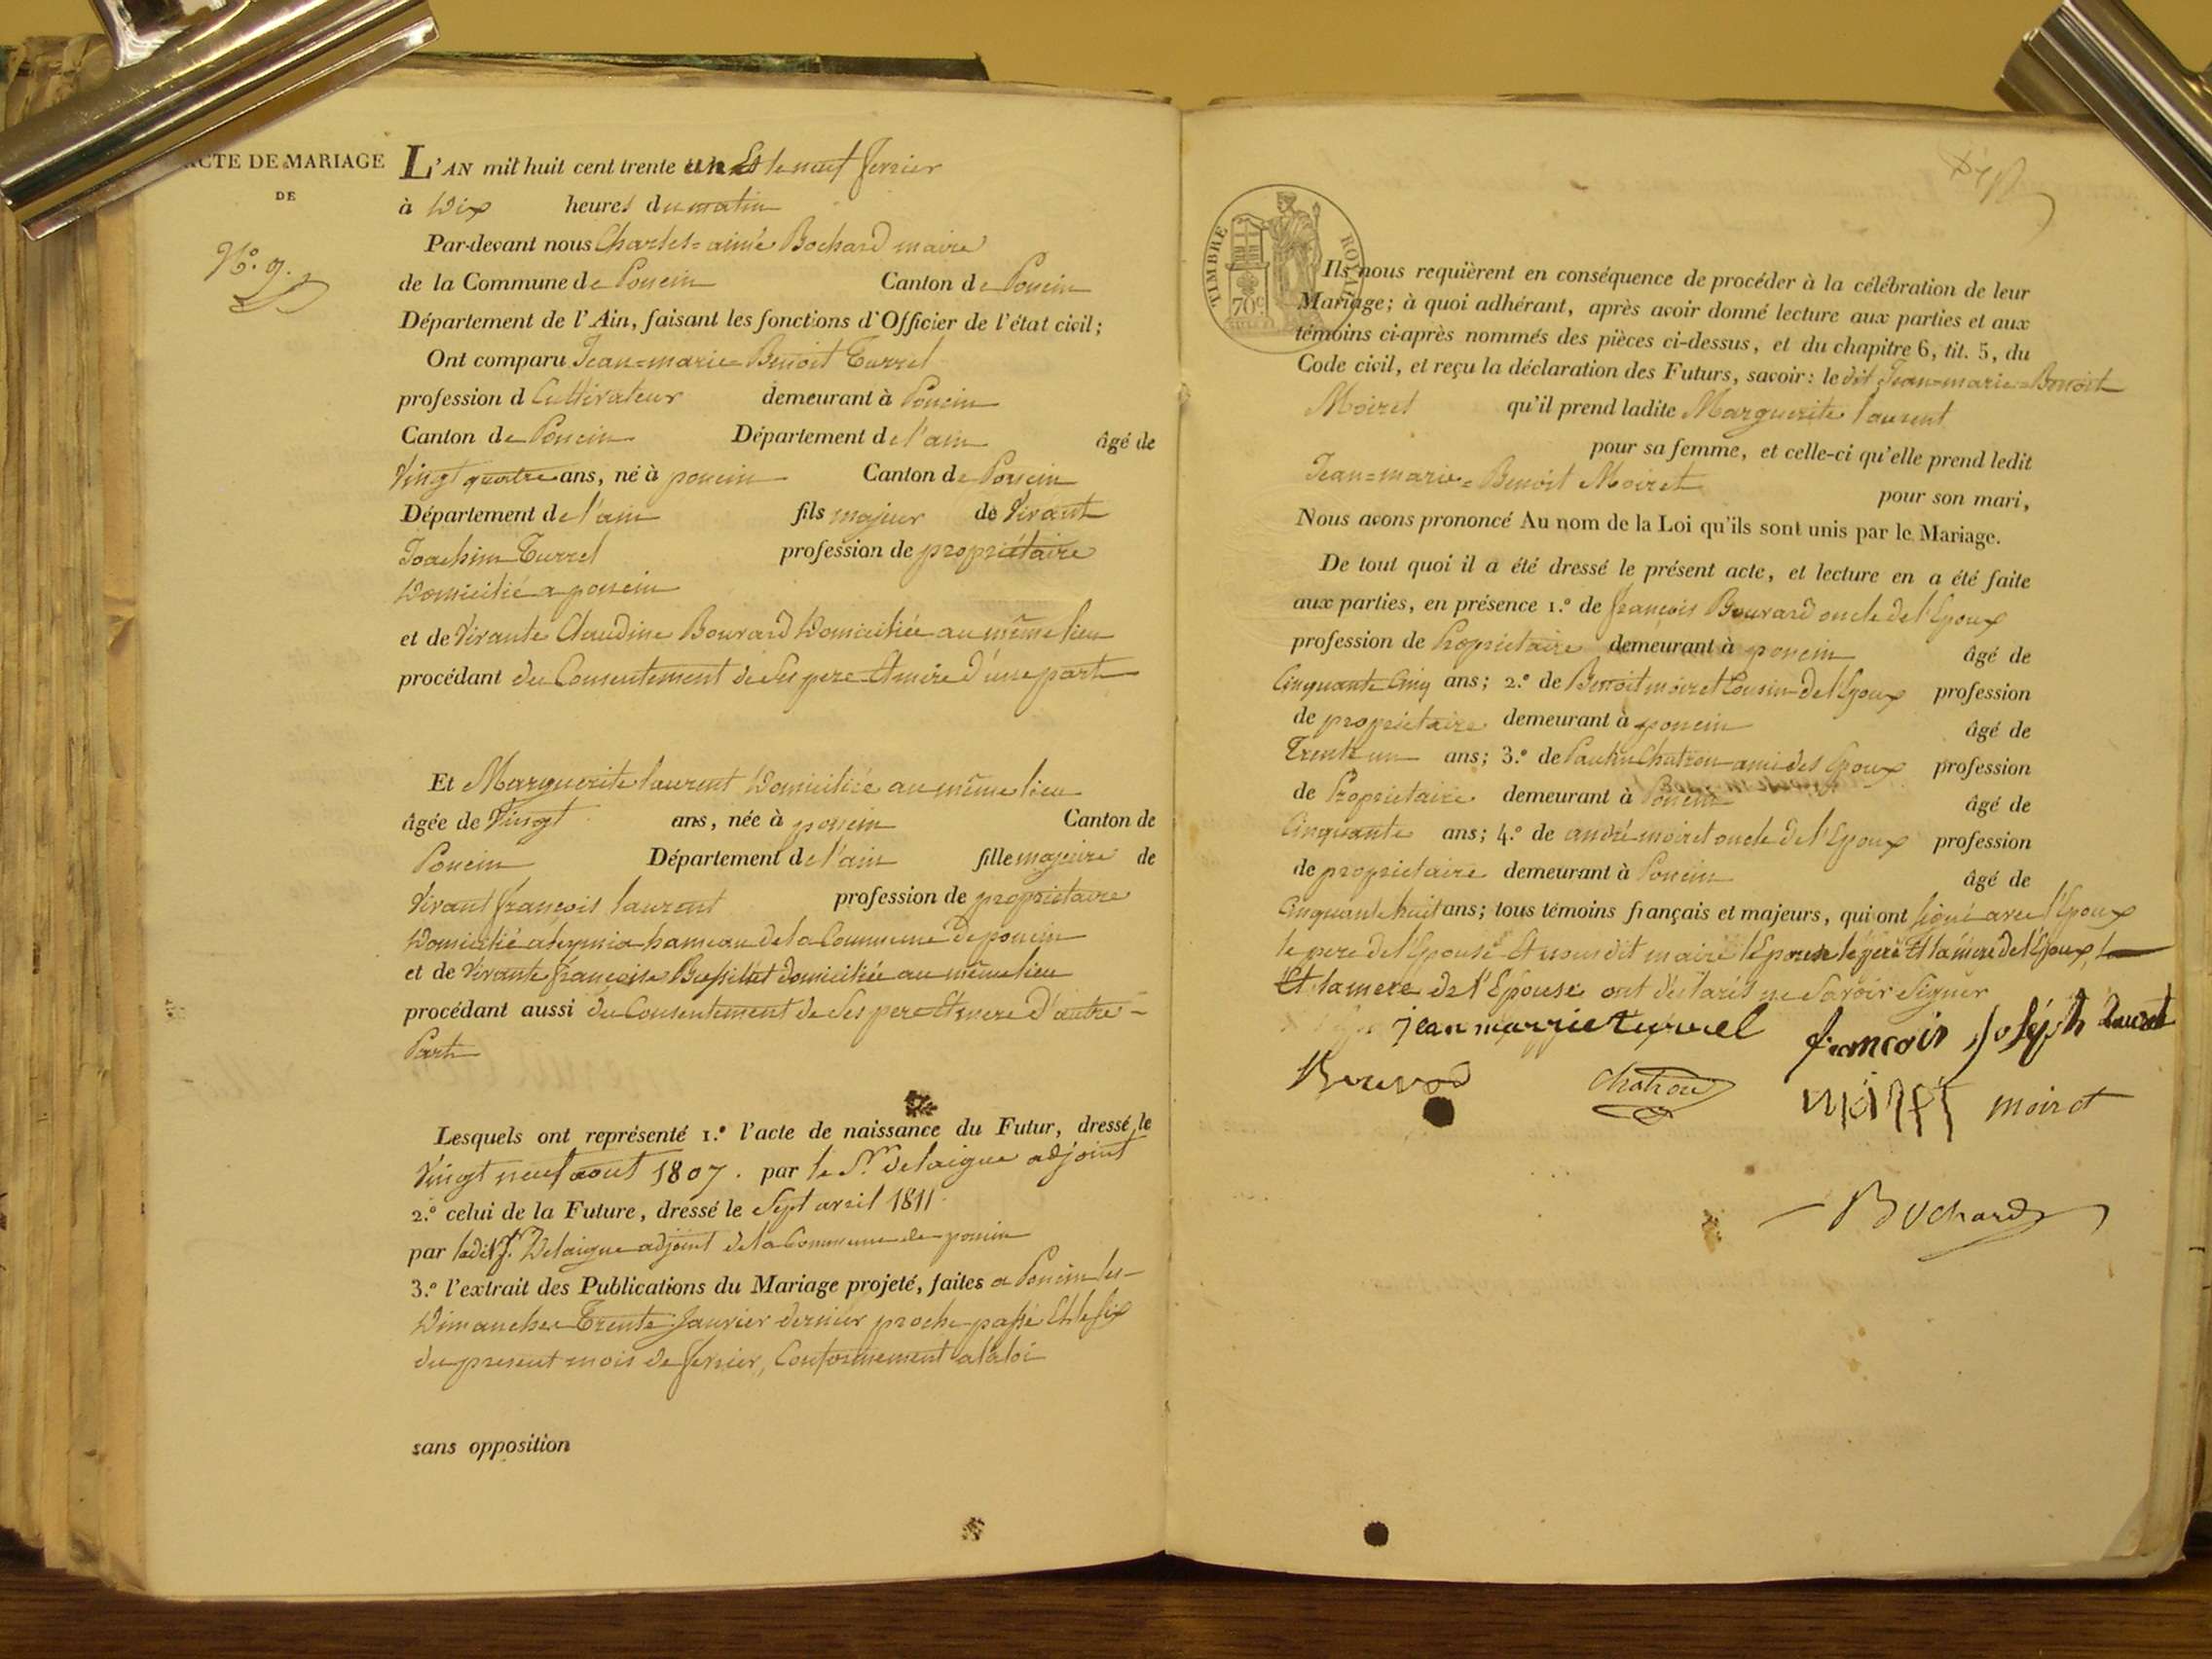 ACTE DE MARIAGE
DE
N.° 9.
L'AN mil huit cent trente un Et le neuf fevrier
à Dix heures du matin
Par-devant nous Charles=aimé Bochard maire
de la Commune de Poncin Canton de Poncin
Département de l'Ain, faisant les fonctions d'Officier de l'état civil;
Ont comparu Jean=marie=Benoit Turrel
profession d Cultivateur demeurant à Poncin
Canton de Poncin Département de l'ain âgé de
Vingt quatre ans, né à poncin Canton de Poncin
Département de l'ain fils majeur de Vivant
Joachim Turrel profession de propriétaire
Domicilié a poncin
et de Vivante Claudine Bouvard Domiciliée au même lieu
procédant du Consentement de Ses pere Et mère d'une part
Et Marguerite laurent Domiciliée au même lieu
âgée de Vingt ans, née à poncin Canton de
Poncin Département de l'ain fille majeure de
Vivant françois laurent profession de propriétaire
Domicilié a hameau de la Commune de poncin
et de Vivante françoise domiciliée au même lieu
procédant aussi du Consentement de Ses pere Et mere d'autre-
Part
Lesquels ont représenté 1.° l'acte de naissance du Futur, dressé le
Vingt neuf aout 1807. par le Sr. Delaigue adjoint
2.° celui de la Future, dressé le Sept avril 1811
par ledit Sr. Delaigue adjoint de la Commune de poncin
3.° l'extrait des Publications du Mariage projeté, faites a Poncin les
Dimanches Trente Janvier dernier proche passé Et le six
du present mois de fevrier, Conformement a la loi
sans opposition
TIMBRE ROYAL
70c
Ils nous requièrent en conséquence de procéder à la célébration de leur
Mariage; à quoi adhérant, après avoir donné lecture aux parties et aux
témoins ci-après nommés des pièces ci-dessus, et du chapitre 6, tit. 5, du
Code civil, et reçu la déclaration des Futurs, savoir: le dit Jean=marie=Benoit
Moiret qu'il prend ladite Marguerite laurent
pour sa femme, et celle-ci qu'elle prend ledit
Jean=marie=Benoit Moiret pour son mari,
Nous avons prononcé Au nom de la Loi qu'ils sont unis par le Mariage.
De tout quoi il a été dressé le présent acte, et lecture en a été faite
aux parties, en présence 1.° de françois Bouvard oncle de l'Epoux
profession de Propriétaire demeurant à poncin âgé de
Cinquante Cinq ans; 2.° de Benoit moiret Cousin de l'Epoux profession
de propriétaire demeurant à poncin âgé de
Trente un ans; 3.° de Paulin Chatron ami des Epoux profession
de Propriétaire demeurant à Poncin âgé de
Cinquante ans; 4.° de andré moiret oncle de l'Epoux profession
de propriétaire demeurant à Poncin âgé de
Cinquante huit ans; tous témoins français et majeurs, qui ont signé avec l'Epoux
le pere de l'Epouse Et nousdit maire l'Epouse le pere Et la mere de l'Epoux,
Et la mere de l'Epouse ont déclarés ne Savoir Signer
jean marrie turrel françois joséph Laurent
Bouvard chatron moiret moiret
Bochard